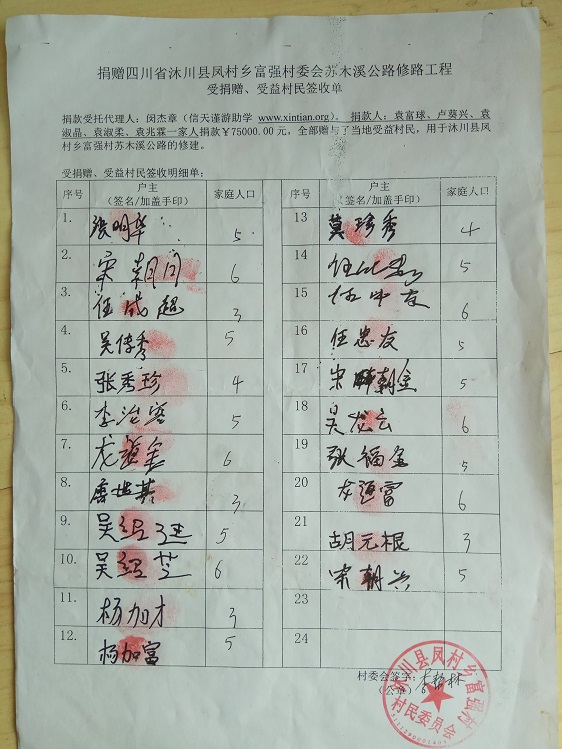 捐赠四川省沐川县凤村乡富强村委会苏木溪公路修路工程
受捐赠、受益村民签收单
捐款受托代理人：闵杰章（信天谨游助学 www.xintian.org)。 捐款人：袁富球、卢葵兴、袁
淑晶、袁淑柔、袁兆霖一家人捐款￥75000.00 元，全部赠与了当地受益村民，用于沐川县凤
村乡富强村苏木溪公路的修建。
受捐赠、受益村民签收明细单：
序号 户主（签名/加盖手印） 家庭人口 序号 户主（签名/加盖手印） 家庭人口
1. 张明华 5 13 莫珍秀 4
2. 宋朝 6 14 任 5
3. 任成超 3 15 任 友 6
4. 吴传秀 5 16 任忠友 5
5. 张秀珍 4 17 宋朝金 5
6. 李治容 5 18 吴 云 6
7. 龙 金 6 19 张福金 5
8. 世其 3 20 龙通富 6
9. 吴绍 5 21 胡元根 3
10. 吴绍芝 6 22 宋朝兴 5
11. 杨加才 3 23
12. 杨加富 5 24
村委会签字：
（公班）
沐川县凤村乡富强村
村民委员会